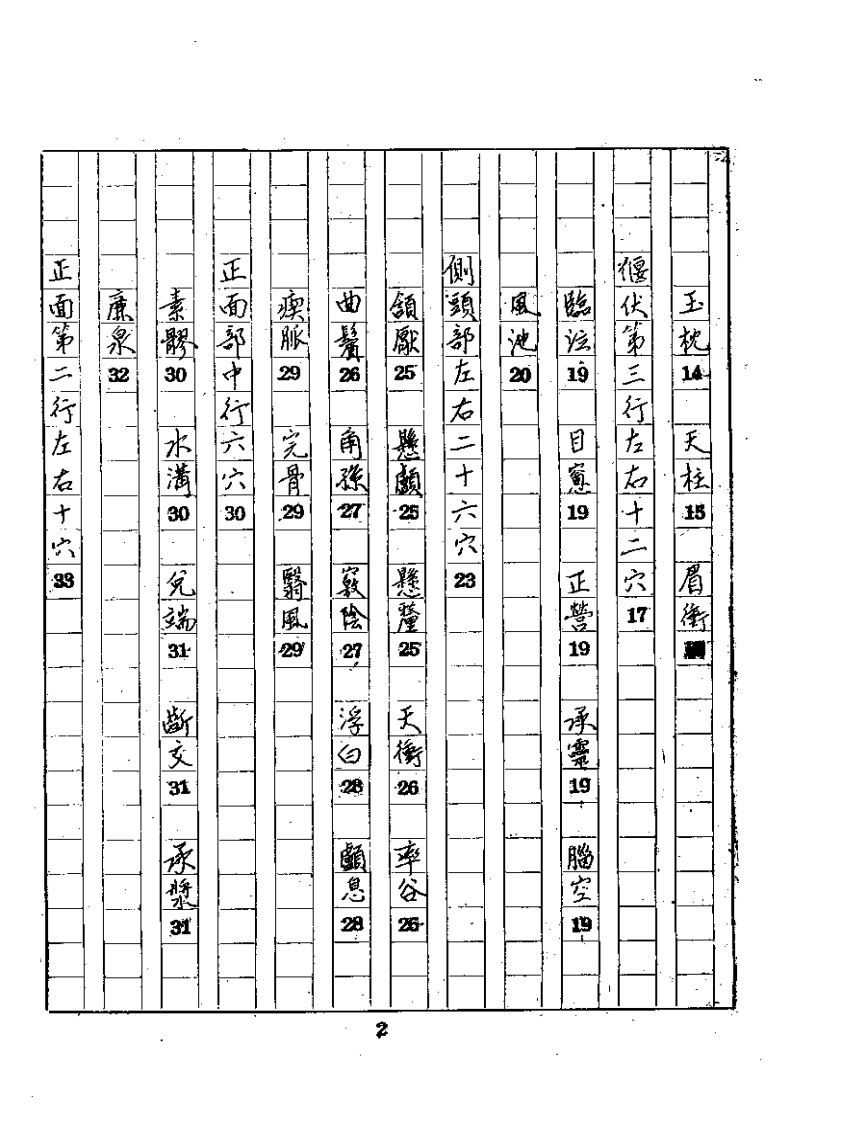 玉枕14 天柱15 眉衝
偃伏第三行左右十二穴17
臨泣19 目窗19 正營19 承靈19 腦空19
風池20
側頭部左右二十六穴23
頷厭25 懸顱25 懸釐25 天衝26 率谷26
曲鬢26 角孫27 竅陰27 浮白28 顱息28
瘈脈29 完骨29 翳風29
正面部中行六穴30
素髎30 水溝30 兌端31 齗交31 承漿31
廉泉32
正面第二行左右十穴33
2